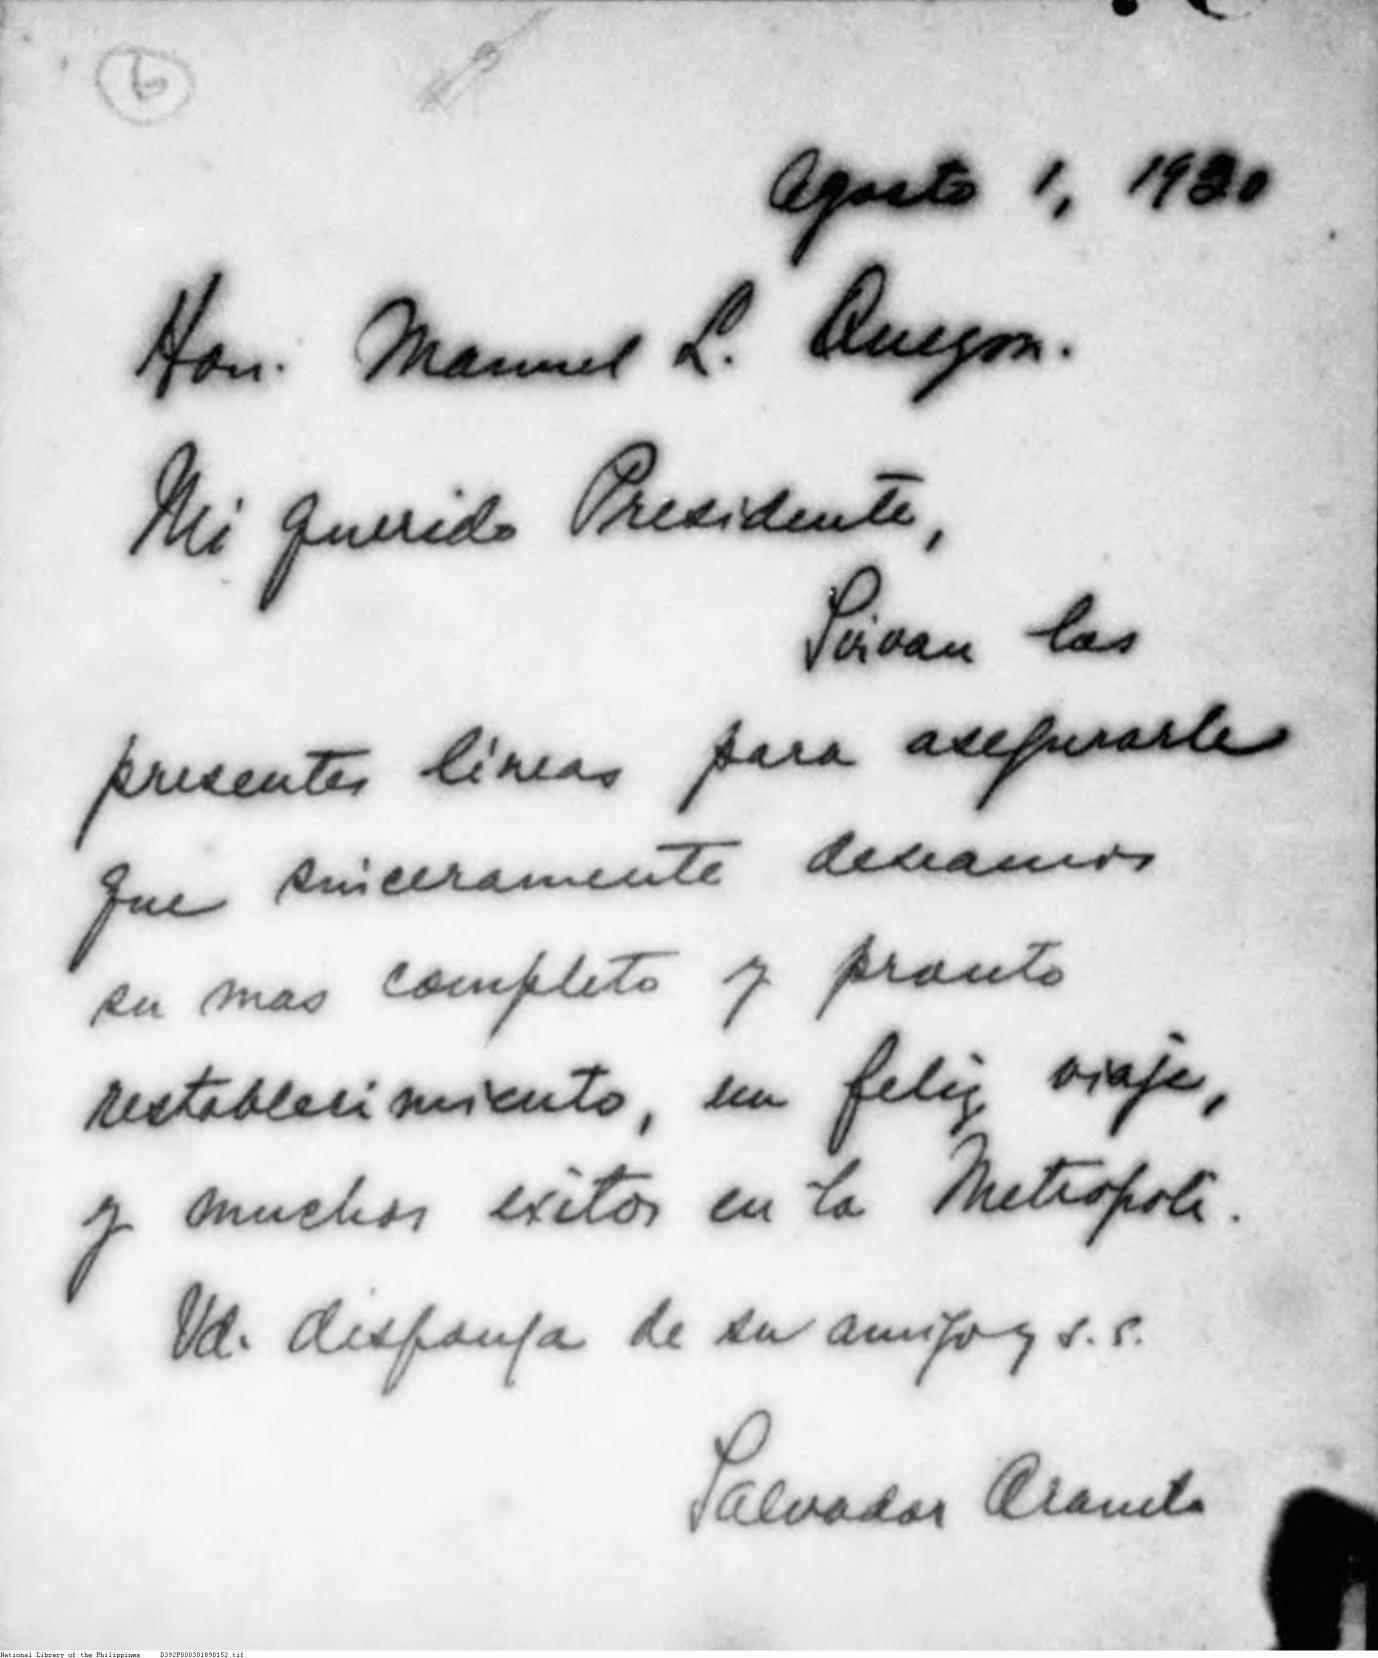 6
Agosto 1, 1930
Hon. Manuel L. Quezon.
Mi querido Presidente,
Sirvan las
presentes líneas para asegurarle
que sinceramente deseamos
su mas completo y pronto
restablecimiento, un feliz viaje,
y muchos exitos en la Metropoli.
Vd. disponga de su amigo y s. s.
Salvador Araneta
National Library of the Philippines D392P000301890152.tif